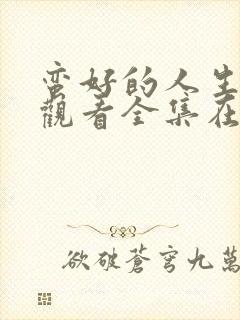 蛮好的人生
觀看全集在
欲破蒼穹九萬